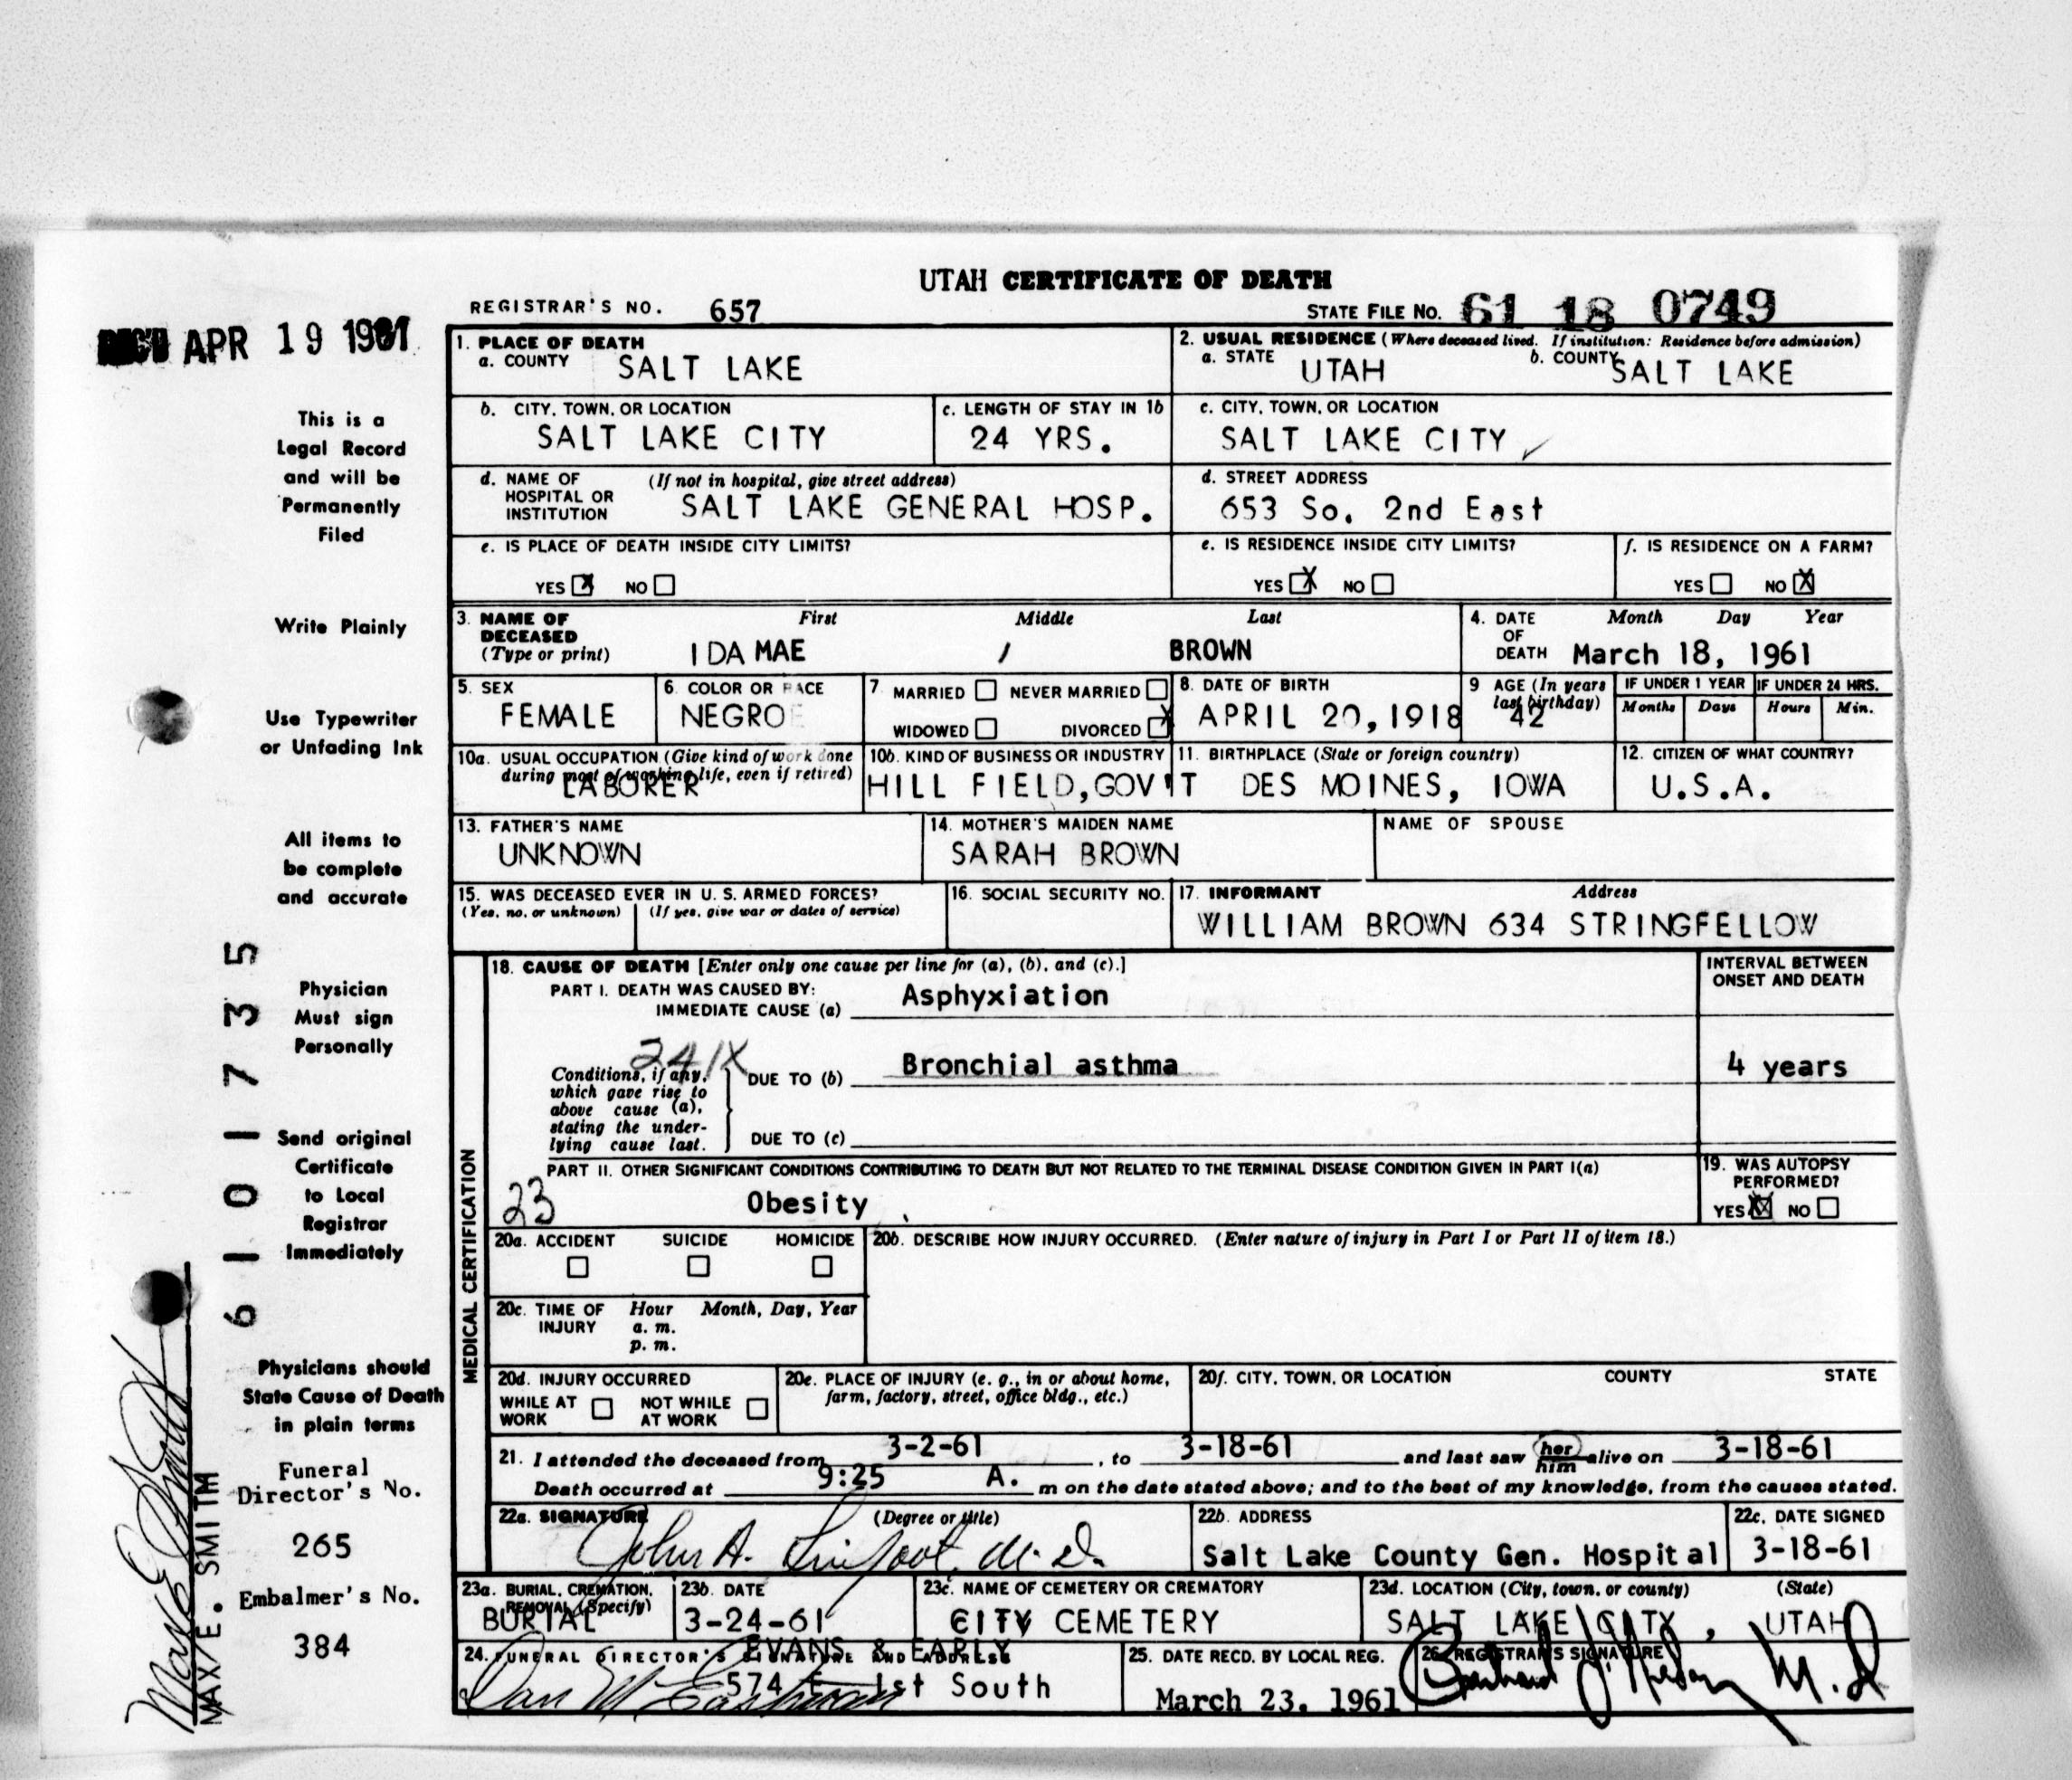 UTAH CERTIFICATE OF DEATH
REGISTRAR'S NO. 657
STATE FILE NO. 61 18 0749
REC'D APR 19 1961
1. PLACE OF DEATH
a. COUNTY SALT LAKE
2. USUAL RESIDENCE (Where deceased lived. If institution: Residence before admission)
a. STATE UTAH b. COUNTY SALT LAKE
b. CITY, TOWN, OR LOCATION
SALT LAKE CITY
c. LENGTH OF STAY IN 1b
24 YRS.
c. CITY, TOWN, OR LOCATION
SALT LAKE CITY
d. NAME OF HOSPITAL OR INSTITUTION (If not in hospital, give street address)
SALT LAKE GENERAL HOSP.
d. STREET ADDRESS
653 So. 2nd East
e. IS PLACE OF DEATH INSIDE CITY LIMITS?
YES X NO
e. IS RESIDENCE INSIDE CITY LIMITS?
YES X NO
f. IS RESIDENCE ON A FARM?
YES NO X
3. NAME OF DECEASED (Type or print) First Middle Last
IDA MAE / BROWN
4. DATE OF DEATH Month Day Year
March 18, 1961
5. SEX
FEMALE
6. COLOR OR RACE
NEGROE
7 MARRIED NEVER MARRIED
WIDOWED DIVORCED X
8. DATE OF BIRTH
APRIL 20, 1918
9 AGE (In years last birthday)
42
IF UNDER 1 YEAR
Months Days
IF UNDER 24 HRS.
Hours Min.
10a. USUAL OCCUPATION (Give kind of work done during most of working life, even if retired)
LABORER
10b. KIND OF BUSINESS OR INDUSTRY
HILL FIELD, GOV'T
11. BIRTHPLACE (State or foreign country)
DES MOINES, IOWA
12. CITIZEN OF WHAT COUNTRY?
U.S.A.
13. FATHER'S NAME
UNKNOWN
14. MOTHER'S MAIDEN NAME
SARAH BROWN
NAME OF SPOUSE
15. WAS DECEASED EVER IN U. S. ARMED FORCES?
(Yes, no, or unknown) (If yes, give war or dates of service)
16. SOCIAL SECURITY NO.
17. INFORMANT Address
WILLIAM BROWN 634 STRINGFELLOW
MEDICAL CERTIFICATION
18. CAUSE OF DEATH [Enter only one cause per line for (a), (b), and (c).]
INTERVAL BETWEEN ONSET AND DEATH
PART I. DEATH WAS CAUSED BY:
IMMEDIATE CAUSE (a) Asphyxiation
241X
Conditions, if any, which gave rise to above cause (a), stating the underlying cause last.
DUE TO (b) Bronchial asthma 4 years
DUE TO (c)
PART II. OTHER SIGNIFICANT CONDITIONS CONTRIBUTING TO DEATH BUT NOT RELATED TO THE TERMINAL DISEASE CONDITION GIVEN IN PART I(a)
23 Obesity
19. WAS AUTOPSY PERFORMED?
YES X NO
20a. ACCIDENT SUICIDE HOMICIDE
20b. DESCRIBE HOW INJURY OCCURRED. (Enter nature of injury in Part I or Part II of item 18.)
20c. TIME OF INJURY Hour Month, Day, Year
a. m.
p. m.
20d. INJURY OCCURRED
WHILE AT WORK NOT WHILE AT WORK
20e. PLACE OF INJURY (e. g., in or about home, farm, factory, street, office bldg., etc.)
20f. CITY, TOWN, OR LOCATION COUNTY STATE
21. I attended the deceased from 3-2-61, to 3-18-61 and last saw her him alive on 3-18-61
Death occurred at 9:25 A. m on the date stated above; and to the best of my knowledge, from the causes stated.
22a. SIGNATURE (Degree or title)
John A. Linfoot, M.D.
22b. ADDRESS
Salt Lake County Gen. Hospital
22c. DATE SIGNED
3-18-61
23a. BURIAL, CREMATION, REMOVAL (Specify)
BURIAL
23b. DATE
3-24-61
23c. NAME OF CEMETERY OR CREMATORY
CITY CEMETERY
23d. LOCATION (City, town, or county) (State)
SALT LAKE CITY, UTAH
24. FUNERAL DIRECTOR'S SIGNATURE AND ADDRESS
EVANS & EARLY
574 E 1st South
25. DATE RECD. BY LOCAL REG.
March 23. 1961
26. REGISTRAR'S SIGNATURE
M.D
This is a
Legal Record
and will be
Permanently
Filed
Write Plainly
Use Typewriter
or Unfading Ink
All items to
be complete
and accurate
Physician
Must sign
Personally
Send original
Certificate
to Local
Registrar
Immediately
Physicians should
State Cause of Death
in plain terms
Funeral
Director's No.
265
Embalmer's No.
384
61017735
Max E Smith
MAX E. SMITH